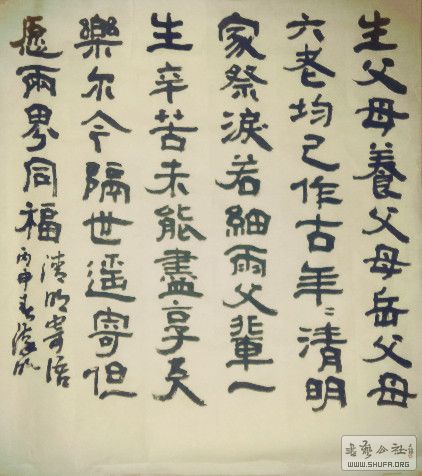 生父母養父母岳父母
六老均已作古年〻清明
家祭淚若細雨父輩一
生辛苦未能盡享天
樂尔今隔世遥寄但
愿兩界同福
清明寄语
丙申春
WWW.SHUFA.ORG